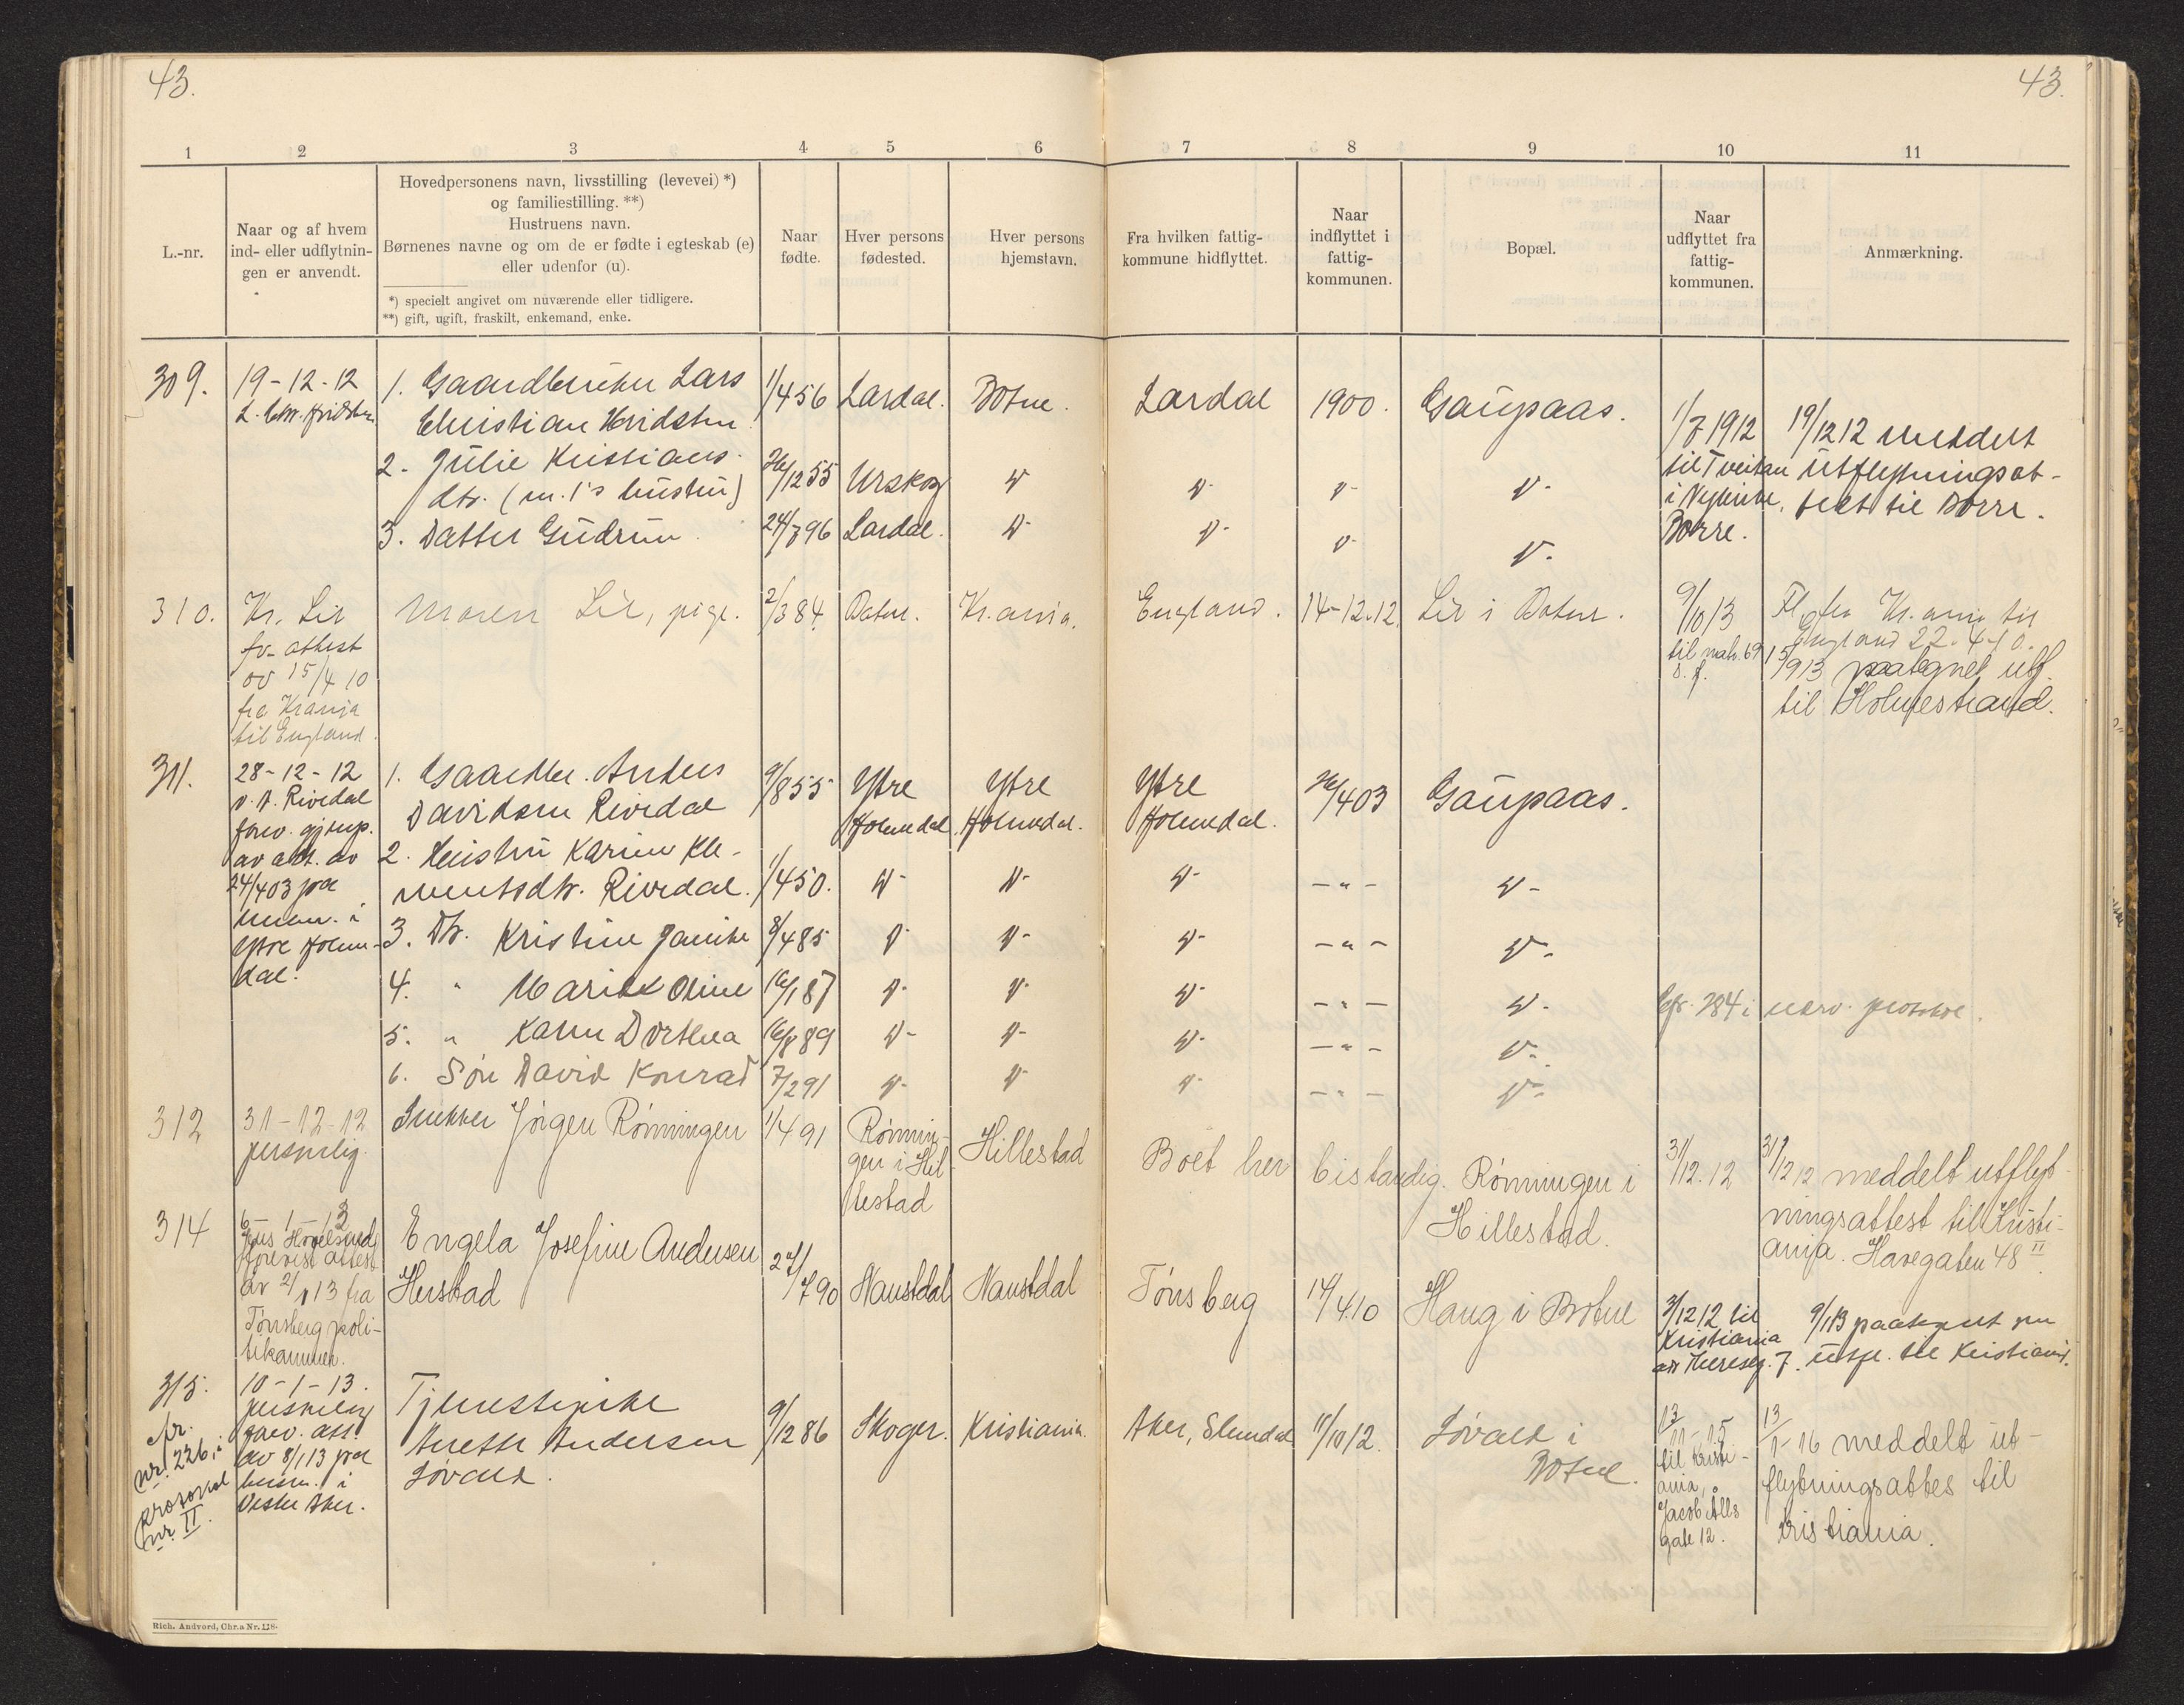 43.
43.
1
2
3
4
5
6
7
8
9
10
11
L.-nr.
Naar og af hvem
ind- eller udflytnin-
gen er anvendt.
Hovedpersonens navn, livsstilling (levevei) *)
og familiestilling. **)
Hustruens navn.
Børnenes navne og om de er fødte i egteskab (e)
eller udenfor (u).
*) specielt angivet om nuværende eller tidligere.
**) gift, ugift, fraskilt, enkemand, enke.
Naar
fødte.
Hver persons
fødested.
Hver persons
hjemstavn.
Fra hvilken fattig-
kommune hidflyttet.
Naar
indflyttet i
fattig-
kommunen.
Bopæl.
Naar
udflyttet fra
fattig-
kommunen.
Anmærkning.
309.
19-12-12
L. Chr. Hvidsten
1. Gaardbruker Lars
Christian Hvidsten
1/4 56
Lardal.
Botne.
Lardal
1900.
Gaupaas.
1/7 1912
til Tveiten
i Nykirke,
Borre.
19/12 12 meddelt
utflytningsat-
test til Borre.
2. Julie Kristians-
dtr. (nr. 1's hustru)
26/12 55
Urskog
3. Datter Gudrun
24/7 96
Lardal.
310.
Kr. Lie
fv. attest
av 15/4 10
fra Kr.ania
til England.
Maren Lie, pige.
2/3 84.
Botne.
Kr.ania.
England.
14-12.12.
Lie i Botne.
9/10 13
til matr. 69
Fl. fra Kr.ania til
England 22-4-10.
15/9 13 paategnet utf.
til Holmestrand.
311.
28-12-12
v. A. Rivedal
forev. gjenp.
av att. av
24/4 03 fra
lensm. i
Ytre Holme-
dal.
1. Gaardbr. Anders
Davidsen Rivedal
9/8 55
Ytre
Holmedal.
Ytre
Holmedal.
Ytre
Holmedal.
26/4 03
Gaupaas.
2. Hustru Karen Kle-
mentsdtr. Rivedal.
1/4 50.
- " -
3. Dtr. Kristine Janike
8/4 85
- " -
4. " Marie Oline
16/1 87
- " -
Cfr. 284 i nærv. protokol.
5. " Karen Dorthea
16/8 89
- " -
6. Søn David Konrad
7/2 91
- " -
312
31-12-12
personlig.
Snekker Jørgen Rønningen
1/4 91
Rønnin-
gen i Hil-
lestad
Hillestad
Boet her bistandig.
Rønningen i
Hillestad.
31/12.12
31/12 12 meddelt utflyt-
ningsattest til Kristi-
ania. Havegaten 48 II.
314
6-1-13
forevist attest
av 2/1 13 fra
Tønsberg poli-
tikammer.
Engela Josefine Andersen
Herstad
27/7 90
Naustdal
Naustdal
Tønsberg
14/4.10
Haug i Botne
3/12 12 til
Kristiania
Theresesg. 7.
9/1 13 paategnet om
utfl. til Kristiania.
315.
cfr.
nr. 226 i
protokol
nr. II.
10-1-13.
personlig
forev. att.
av 8/1 13 fra
lensm. i
Vestre Aker.
Tjenestepike
Anette Andersen
Løvald.
9/12 86
Skoger.
Kristiania.
Aker, Slemdal
11/10 12.
Løvald i
Botne.
13/11-15
til Kristi-
ania,
Jacob Alls
gate 12.
13/1-16 meddelt ut-
flytningsattes til
Kristiania.
Rich. Andvord, Chr.a Nr. 118.